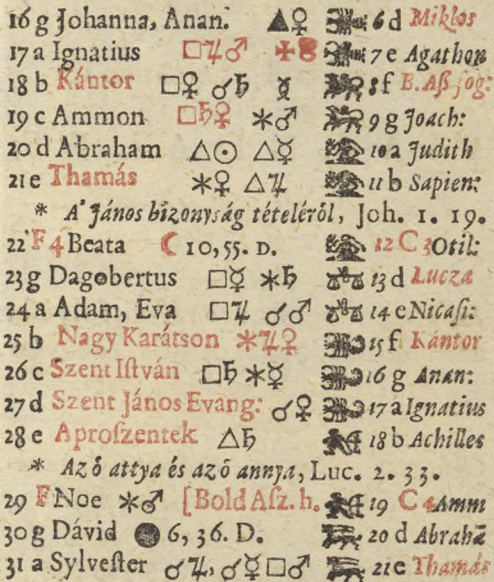 16 g Johanna, Anan. △♀ 6 d Miklos
17 a Ignatius □♃♂ 7 e Agathon
18 b Kántor □♀ ☌♄ ☿ 8 f B. Aſſ. fog:
19 c Ammon □♄♀ ⚹♂ 9 g Joach:
20 d Abraham △☉ △☿ 10 a Judith
21 e Thamás ⚹♀ △♃ 11 b Sapien:
* A' János bizonyság tételéröl, Joh. 1. 19.
22 F 4 Beata ☾ 10, 55. D. 12 C 3 Otil:
23 g Dagobertus □☿ ⚹♄ 13 d Lucza
24 a Adam, Eva □♃ ☌♂ 14 e Nicaſi:
25 b Nagy Karátson ⚹♃♀ 15 f Kántor
26 c Szent Iſtván □♄ ⚹☿ 16 g Anan:
27 d Szent János Evang: ☌♀ 17 a Ignatius
28 e Aproſzentek △♄ 18 b Achilles
* Az ö attya és az ö annya, Luc. 2. 33.
29 F Noe ⚹♂ [Bold Aſz. h. 19 C 4 Amm
30 g Dávid ● 6, 36. D. 20 d Abrahã
31 a Sylveſter ☌♃, ☌☿ □♂ 21 e Thamás